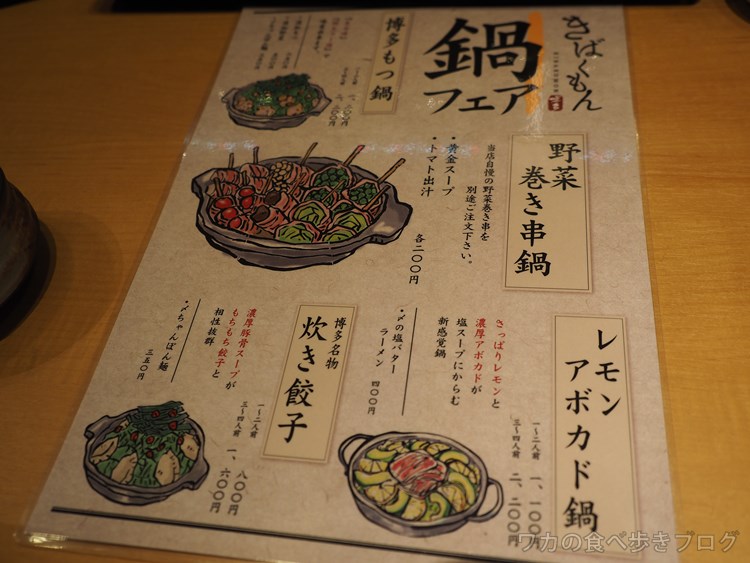 きばくもん
鍋
フェア
野菜
巻き串鍋
当店自慢の野菜巻き串を
別途ご注文下さい。
・黄金スープ
・トマト出汁
各二〇〇円
博多もつ鍋
レモン
アボカド鍋
さっぱりレモンと
濃厚アボカドが
塩スープにからむ
新感覚鍋
一〜二人前 一、一〇〇円
三〜四人前 二、二〇〇円
・〆の塩バター
ラーメン
四〇〇円
博多名物
炊き餃子
濃厚豚骨スープが
もちもち餃子と
相性抜群
一〜二人前 八〇〇円
三〜四人前 一、六〇〇円
・〆ちゃんぽん麺
三五〇円
ワカの食べ歩きブログ